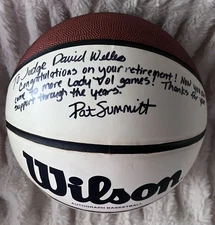 To Judge David Welles
Congratulations on your retirement! Now you
come to more Lady Vol games! Thanks for your
support through the years.
Pat Summitt
Wilson
AUTOGRAPH BASKETBALL